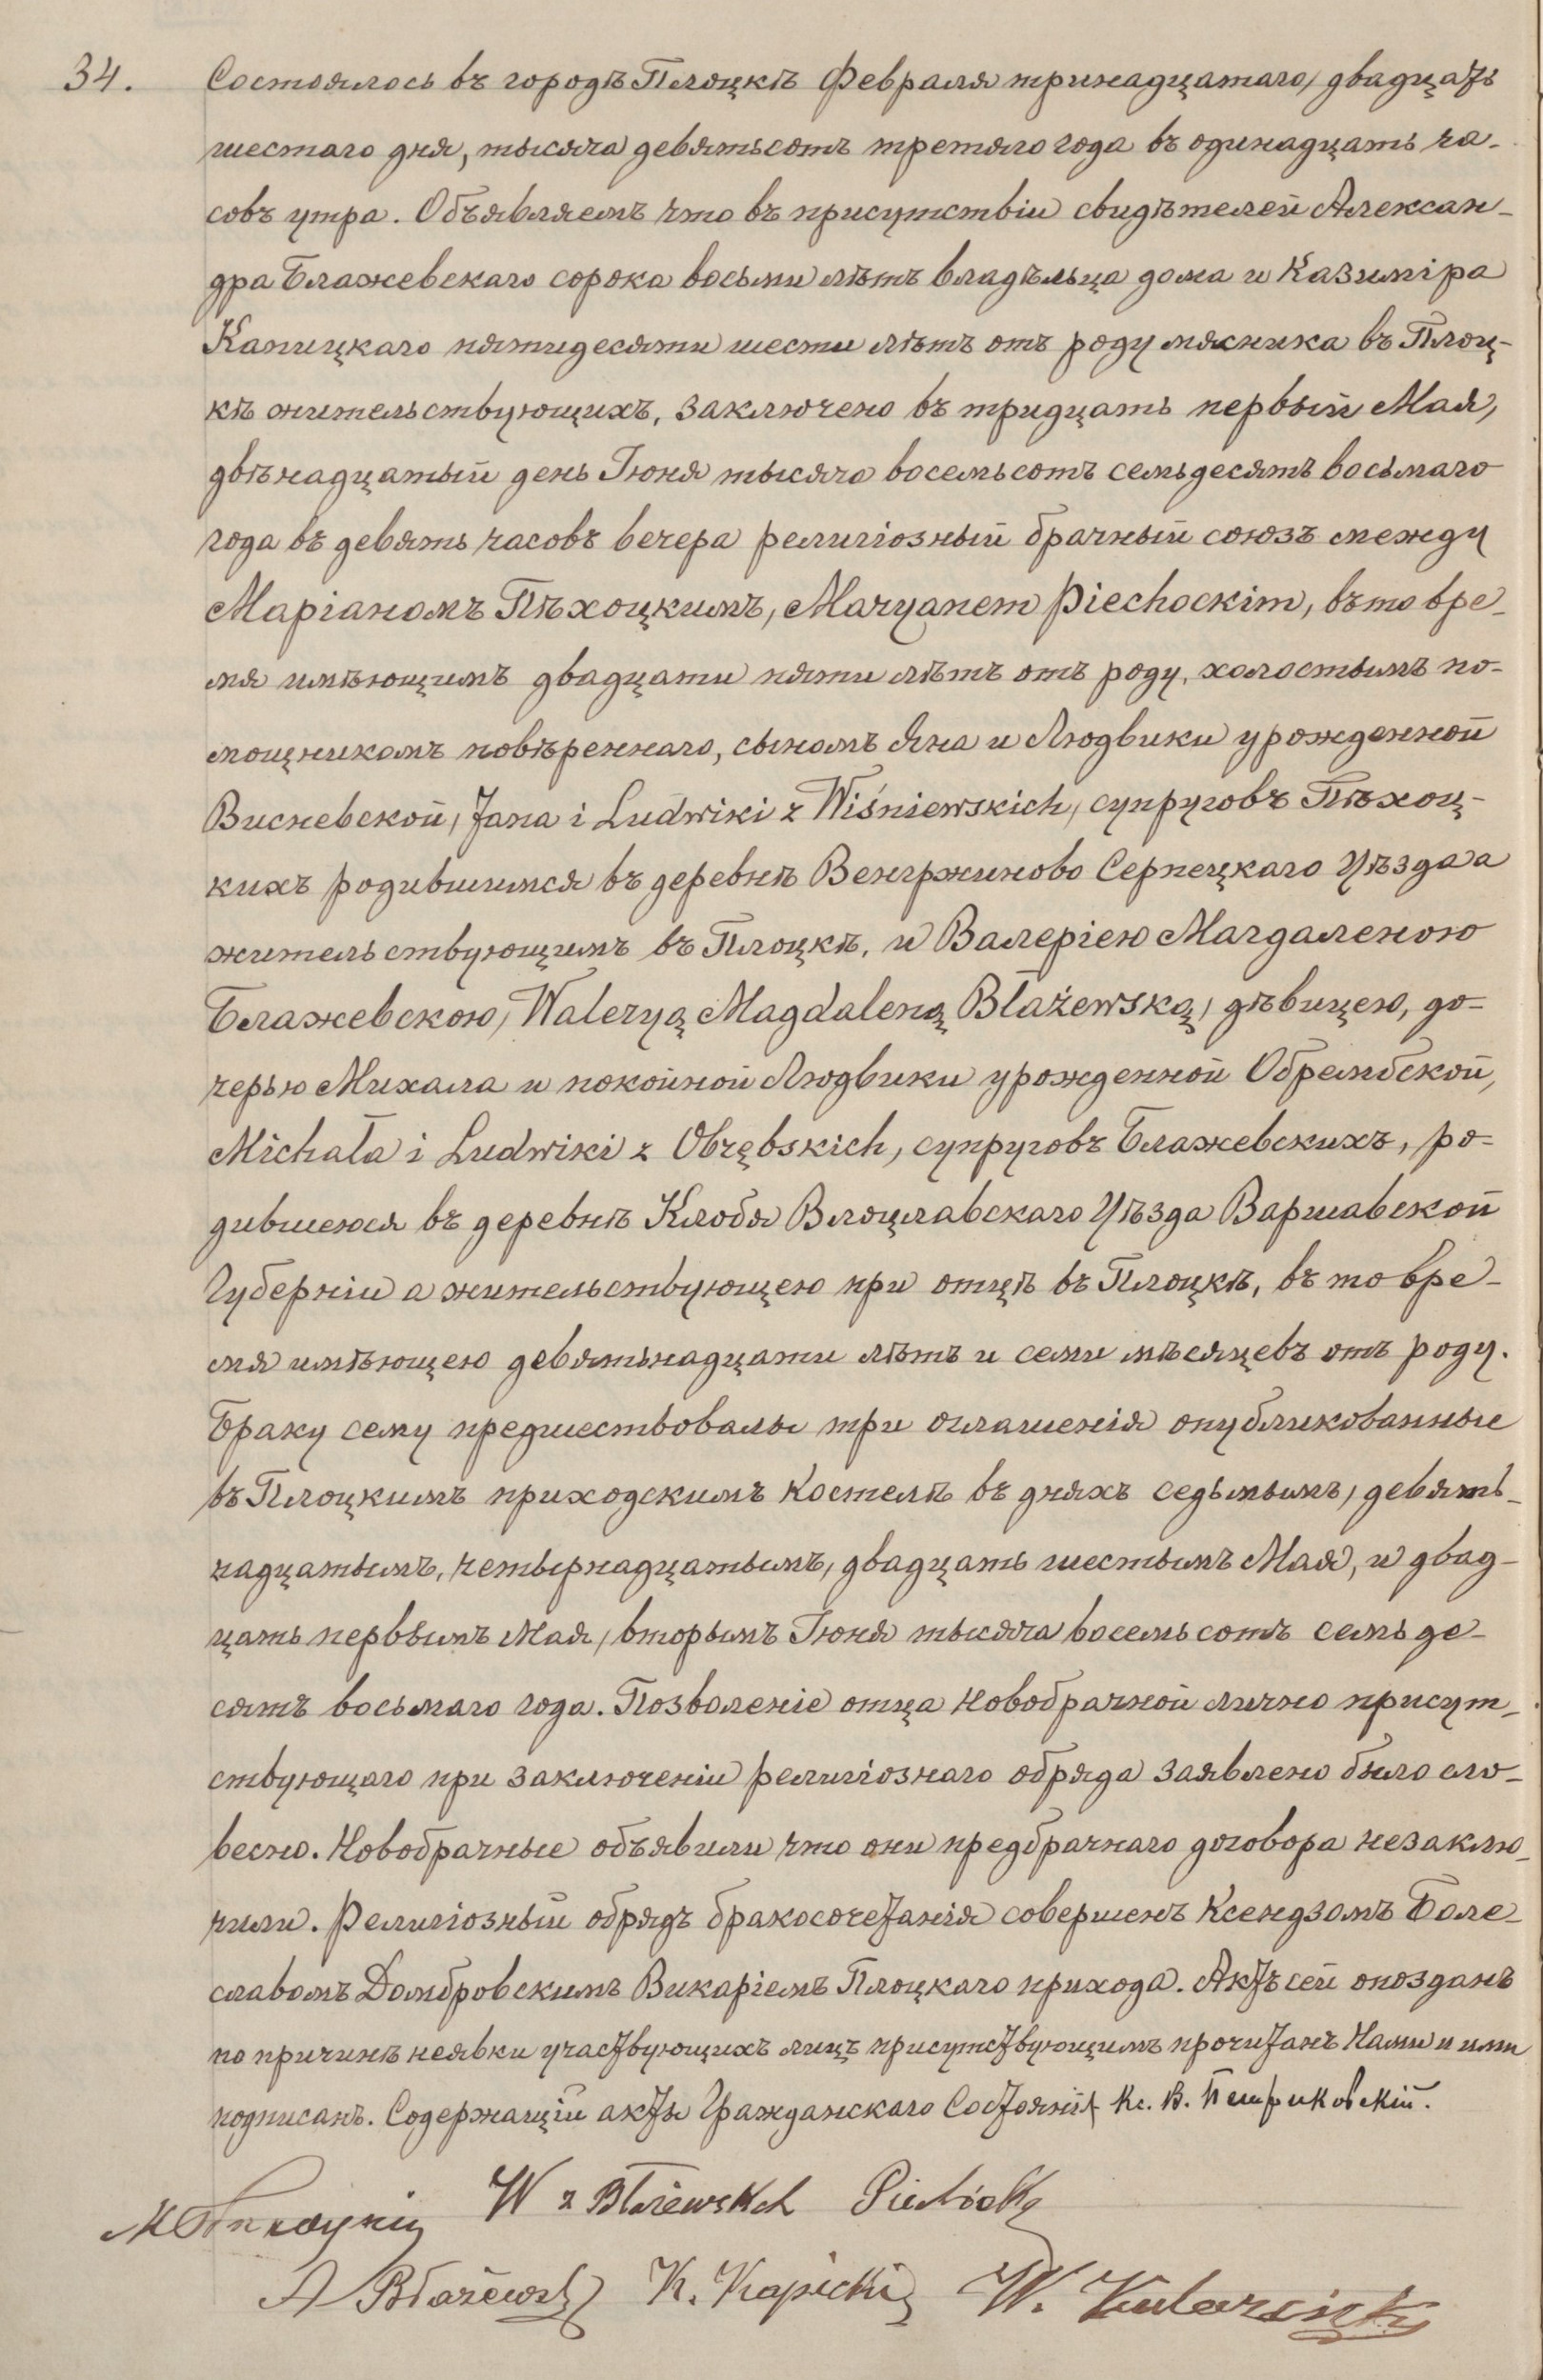 34. Состоялось въ городѣ Плоцкѣ Февраля тринадцатаго, двадцать
шестаго дня, тысяча девятьсотъ третяго года въ одинадцать ча-
совъ утра. Объявляемъ что въ присутствіи свидѣтелей Алексан-
дра Блажевскаго сорока восьми лѣтъ владѣльца дома и Казиміра
Капицкаго пятидесяти шести лѣтъ отъ роду мясника въ Плоц-
кѣ жительствующихъ, заключено въ тридцать первый Мая,
двѣнадцатый день Іюня тысяча восемьсотъ семьдесятъ восьмаго
года въ девять часовъ вечера религіозный брачный союзъ между
Маріаномъ Пѣхоцкимъ, Maryanem Piechockim, въ то вре-
мя имѣющимъ двадцати пяти лѣтъ отъ роду, холостымъ по-
мощникомъ повѣреннаго, сыномъ Яна и Людвики урожденной
Висневской, Jana i Ludwiki z Wiśniewskich, супруговъ Пѣхоц-
кихъ родившимся въ деревнѣ Венгржиново Серпецкаго Уѣзда а
жительствующимъ въ Плоцкѣ, и Валеріею Магдаленою
Блажевскою, Waleryą Magdaleną Błażewską, дѣвицею, до-
черью Михала и покойной Людвики урожденной Обрембской,
Michała i Ludwiki z Obrębskich, супруговъ Блажевскихъ, ро-
дившеюся въ деревнѣ Клобя Влоцлавскаго Уѣзда Варшавской
Губерніи а жительствующею при отцѣ въ Плоцкѣ, въ то вре-
мя имѣющею девятьнадцати лѣтъ и семи мѣсяцевъ отъ роду.
Браку сему предшествовалы три оглашенія опубликованные
въ Плоцкимъ приходскимъ Костелѣ въ дняхъ седьмымъ, девять-
надцатымъ, четырнадцатымъ, двадцать шестымъ Мая, и двад-
цать первымъ Мая, вторымъ Іюня тысяча восемьсотъ семьде-
сятъ восьмаго года. Позволеніе отца Новобрачной лично присут-
ствующаго при заключеніи религіознаго обряда заявлено было сло-
весно. Новобрачные объявили что они предбрачнаго договора незаклю-
чили. Религіозный обрядъ бракосочетанія совершенъ Ксендзомъ Боле-
славомъ Домбровскимъ Викаріемъ Плоцкаго прихода. Актъ сей опозданъ
по причинѣ неявки участвующихъ лицъ присутствующимъ прочитанъ Нами и ими
подписанъ. Содержащій акты Гражданскаго Состоянія Кс. В. Петриковскій.
W z Błażewskch Piechocka
A Błażewski K. Kapicki W.